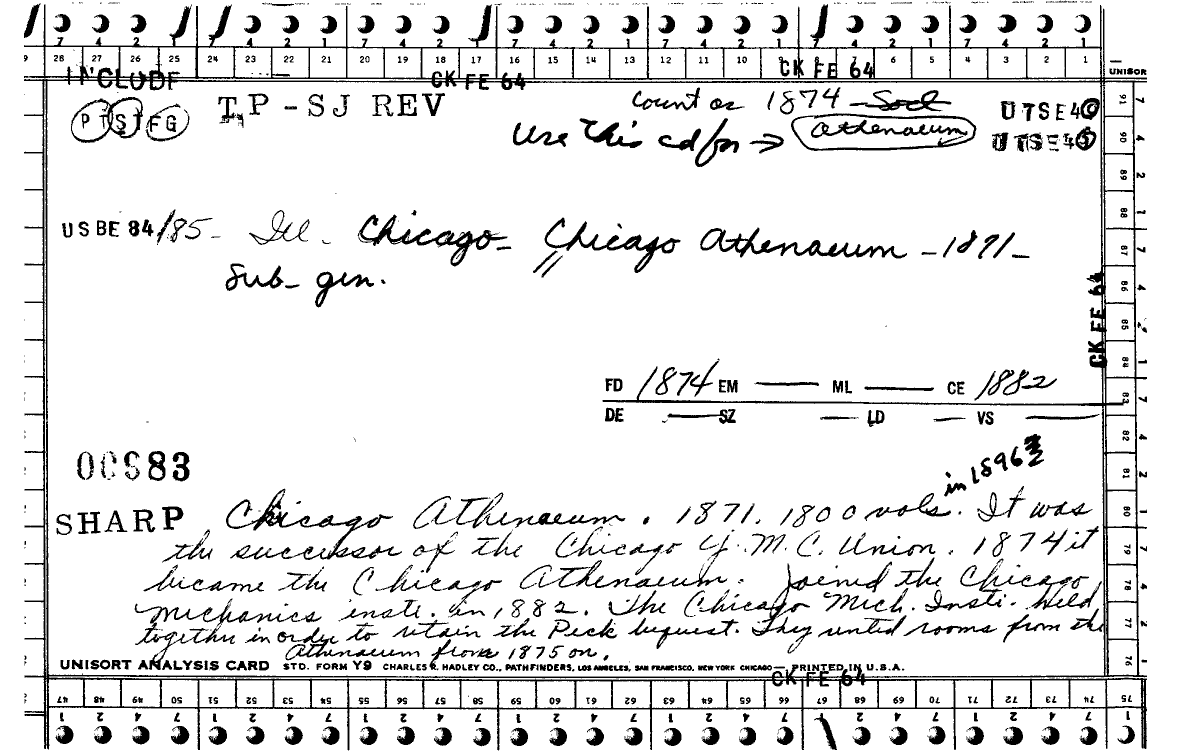 7 4 2 1 7 4 2 1 7 4 2 1 7 4 2 1 7 4 2 1 7 4 2 1 7 4 2 1
28 27 26 25 24 23 22 21 20 19 18 17 16 15 14 13 12 11 10 9 8 7 6 5 4 3 2 1
INCLUDE CK FE 64 CK FE 64 UNISOR
P T S T F G T.P - SJ REV count as 1874 Socl UTSE40
Use this cd for → Athenaeum UTSE45
USBE 84/85 - Ill. Chicago - Chicago Athenaeum - 1871 -
Sub - gen.
CK FE 64
FD 1874 EM — ML — CE 1882
DE — SZ — LD — VS —
00983
in 1896
SHARP Chicago Athenaeum. 1871. 1800 vols. It was
the successor of the Chicago Y.M.C. Union. 1874 it
became the Chicago Athenaeum. Joined the Chicago
Mechanics insti. in 1882. The Chicago Mech. Insti. held
together in order to retain the Peck bequest. They rented rooms from the
Athenaeum from 1875 on.
UNISORT ANALYSIS CARD STD. FORM Y9 CHARLES R. HADLEY CO., PATHFINDERS, LOS ANGELES, SAN FRANCISCO, NEW YORK CHICAGO — PRINTED IN U.S.A.
CK FE 64
91 90 89 88 87 86 85 84 83 82 81 80 79 78 77 76
47 48 49 50 51 52 53 54 55 56 57 58 59 60 61 62 63 64 65 66 67 68 69 70 71 72 73 74 75
1 2 4 7 1 2 4 7 1 2 4 7 1 2 4 7 1 2 4 7 1 2 4 7 1 2 4 7 1